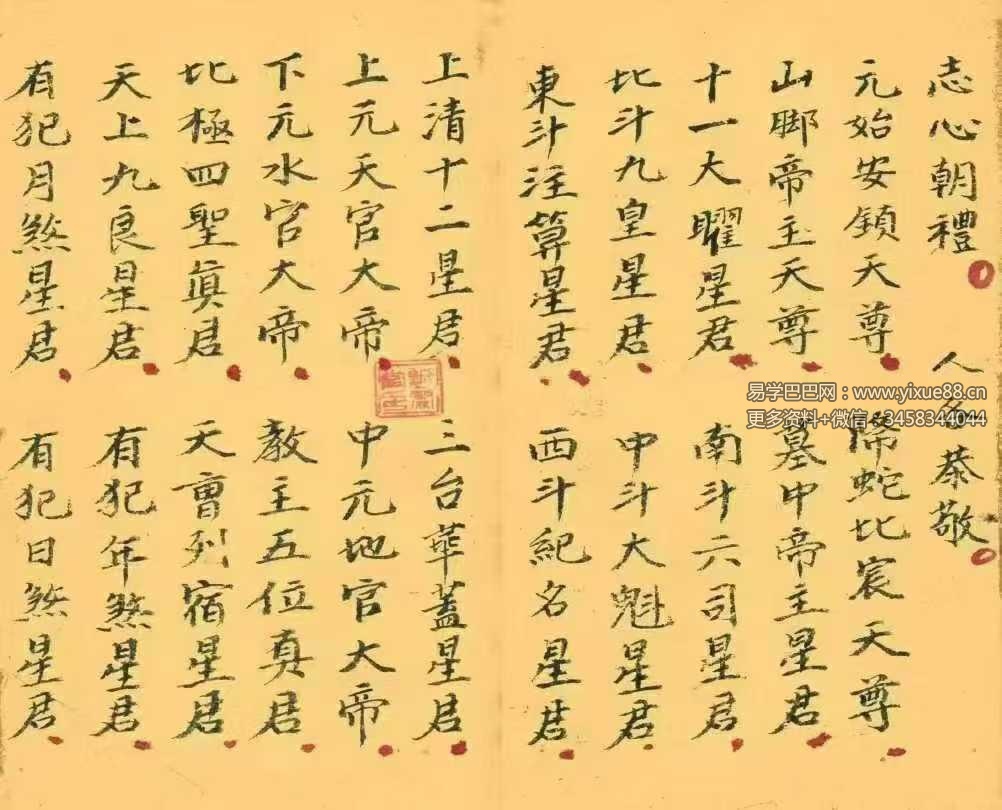 志心朝禮 人各恭敬
元始安鎮天尊 騰蛇比宸天尊
山脚帝主天尊 墓中帝主星君
十一大曜星君 南斗六司星君
比斗九皇星君 中斗大魁星君
東斗注算星君 西斗紀名星君
上清十二星君 三台華蓋星君
上元天官大帝 中元地官大帝
下元水官大帝 教主五位真君
比極四聖真君 天曹列宿星君
天上九良星君 有犯年煞星君
有犯月煞星君 有犯日煞星君
易学巴巴网：www.yixue88.cn
更多资料+微信：3458344044